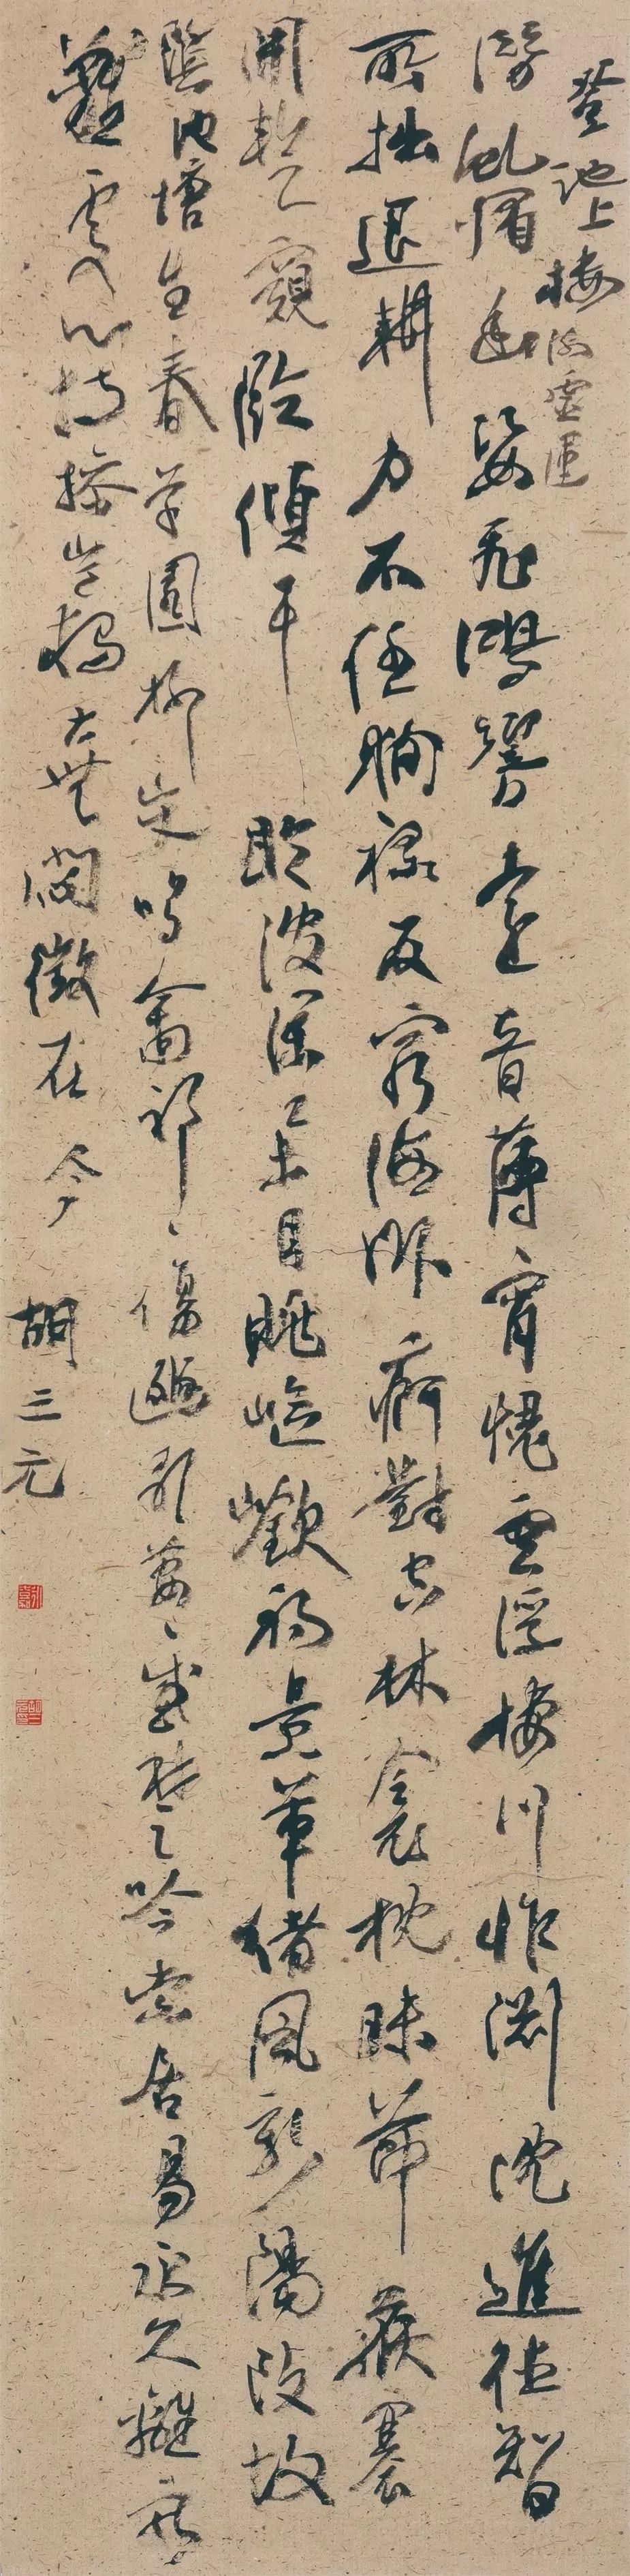 登池上樓 謝靈運
潛虬媚幽姿飛鴻響遠音薄霄愧雲浮棲川怍淵沈進德智
所拙退耕力不任徇祿反窮海臥痾對空林衾枕昧節候褰
開暫窺臨傾耳聆波瀾舉目眺嶇嶔初景革緒風新陽改故
陰池塘生春草園柳變鳴禽祁祁傷豳歌萋萋感楚吟索居易永久離群
難處心持操豈獨古無悶徵在今
胡三元